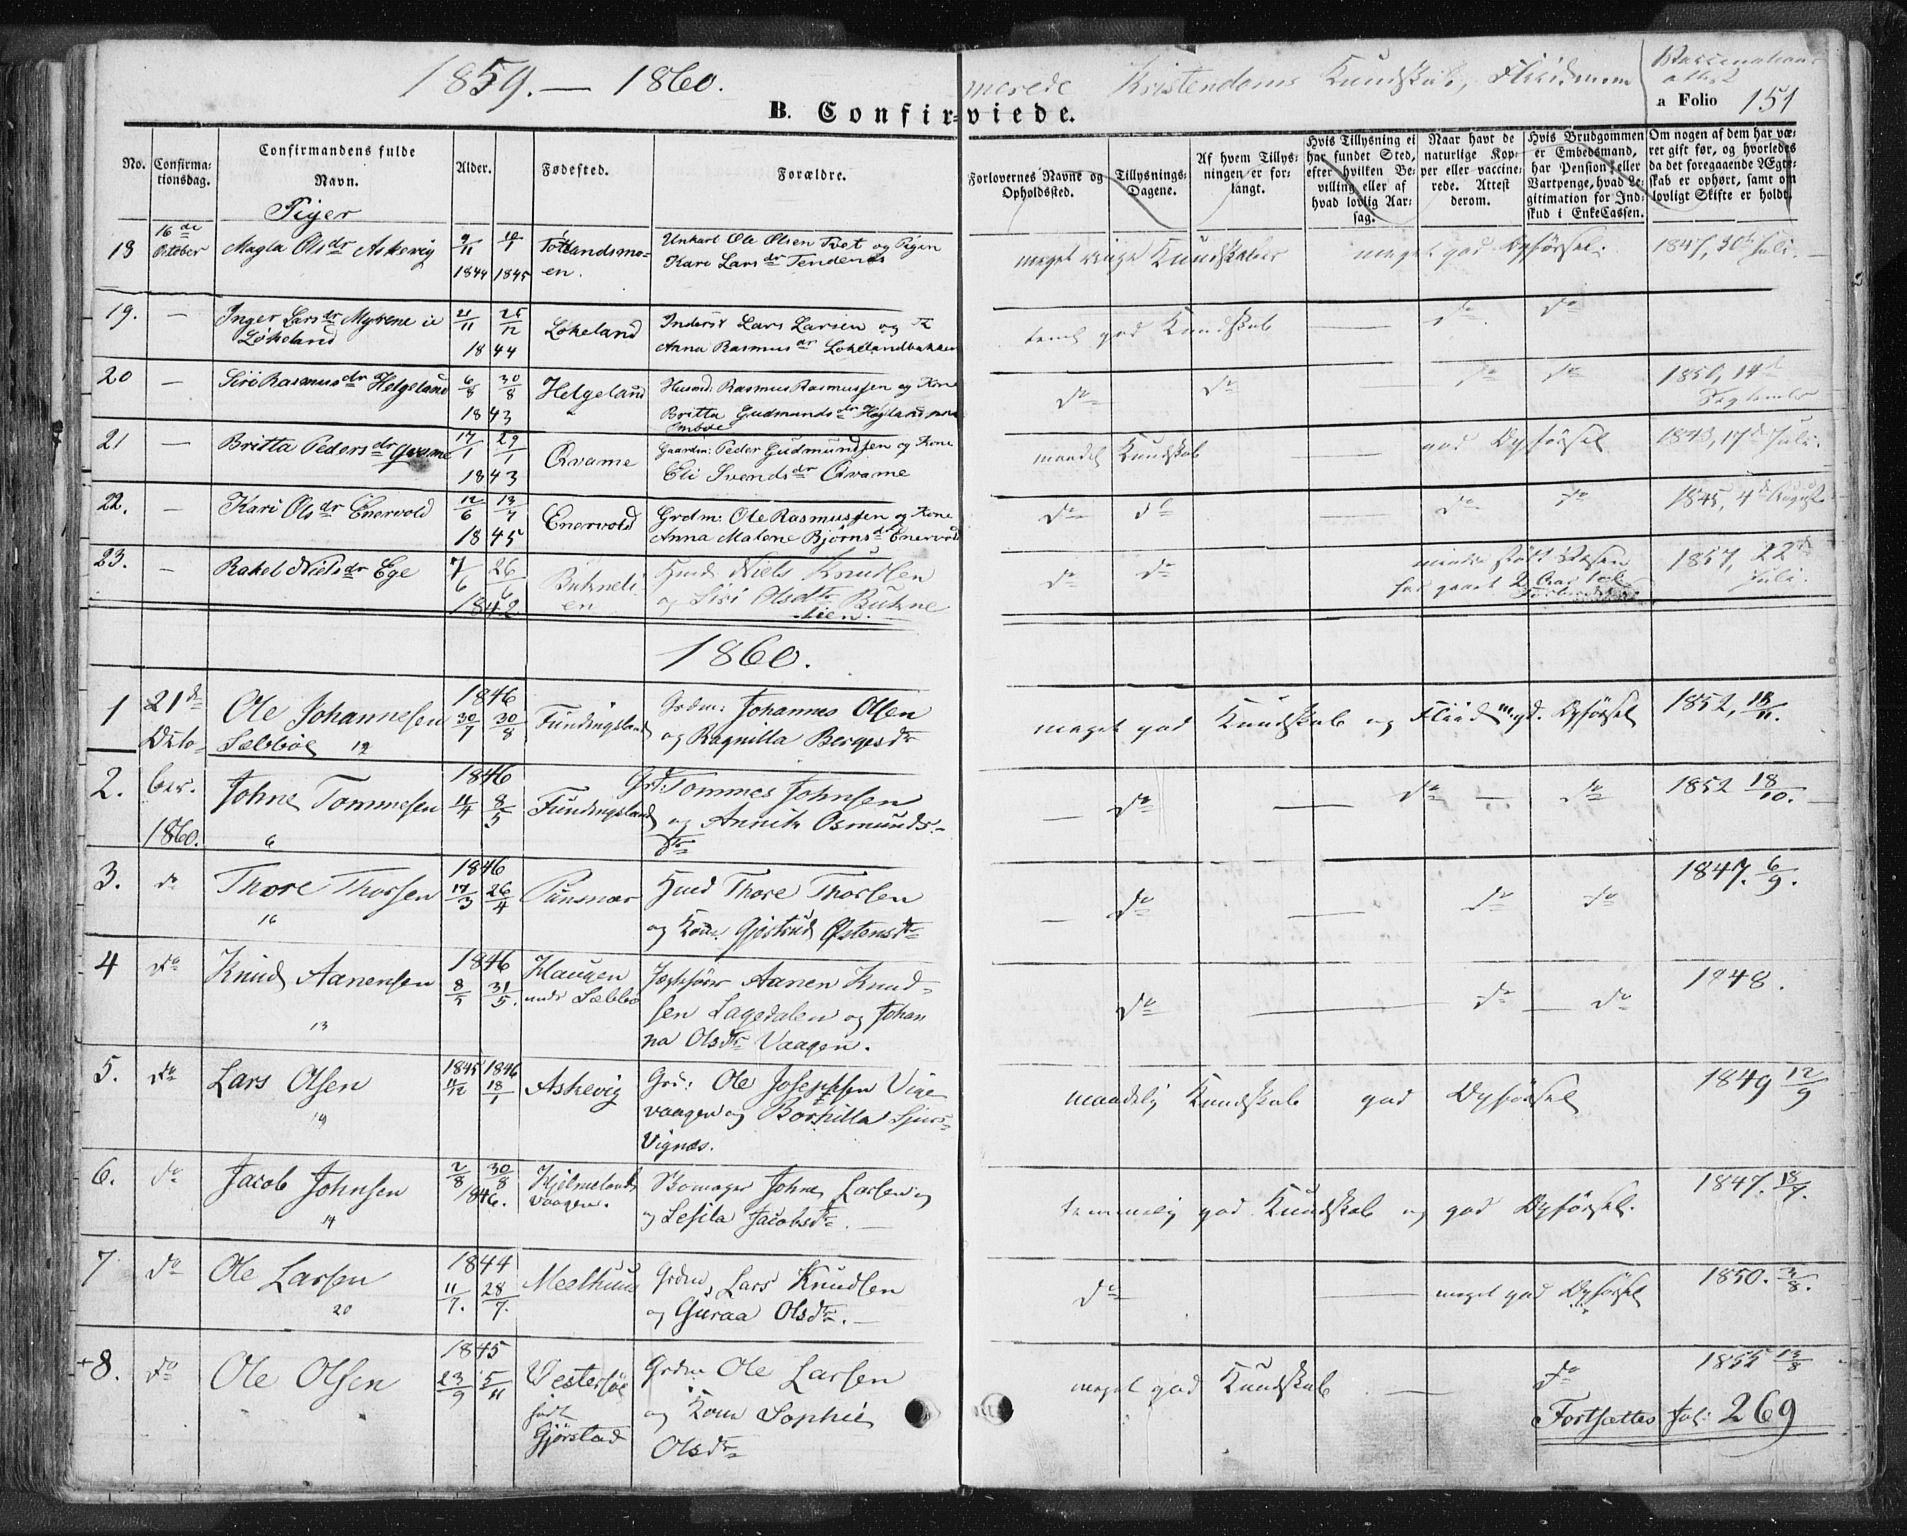 1859. — 1860.
merede Kristendoms Kundskab, Fliid
Vaccinations
attest
B. Confir= viede.
a Folio 151
No.
Confirma-
tionsdag.
Confirmandens fulde
Navn.
Alder.
Fødested.
Forældre.
Forlovernes Navne og
Opholdssted.
Tillysnings-
Dagene.
Af hvem Tillys-
ningen er for-
langt.
Hvis Tillysning ei
har fundet Sted,
efter hvilken Be-
villing eller af
hvad lovlig Aar-
sag.
Naar havt de
naturlige Kop-
per eller vaccine-
rede. Attest
derom.
Hvis Brudgommen
er Embedsmand,
har Pension eller
Vartpenge, hvad Le-
gitimation for Ind-
skud i EnkeCassen.
Om nogen af dem har væ-
ret gift før, og hvorledes
da det foregaaende Ægte-
skab er ophørt, samt om
lovligt Skifte er holdt.
Piger
18 16de October Magla Olsdr Askevig 9/11 1844 1845 Totlandsmo-
en.
Unkarl Ole Olsen Tvet og Pigen
Kari Larsdr Tendenes
meget ringe Kundskaber meget god Opførsel. 1847, 30te Juli.
19. — Inger Larsdr Myrene ie
Løkeland
21/11 25/12
18 44
Løkeland
Inderst Lars Larsen og K
Anna Rasmusdr Løkelandbakken
teml. god Kundskab — do do
20 — Siri Rasmusdr Helgeland 6/8 30/8
18 43
Helgeland
Husmd: Rasmus Rasmussen og Kone
Britta Gudmundsdr
do do do do 1851, 14d
September
21 — Britta Pedersdr Qvame 17/1 29/1
18 43
Qvame
Gaardm: Peder Gudmundsen og Kone
Eli Svendsdr Qvame
maadel. Kundskab — god Opførsel 1843, 17d Juli.
22. — Kari Olsdr Enervold 12/6 13/7
18 45
Enervold
Grdm: Ole Rasmussen og Kone
Anna Malene Bjørnsdr Enervold
do do — do do 1845, 4de August
23. — Rakel Nielsdr Ege 7/6 26/6
1842
Bukneli
en
Husmd Niels Knudsen
og Siri Olsdtr Bukne
lien.
do do 1857, 22de
Juli.
1860.
1 21de
Octo-
Ole Johannesen
Sæbbøe 12
1846
30/7 30/8
Fundingsland
Grdm: Johannes Olsen
og Ragnilla Bergesdtr
meget god Kundskab og Fliid mgd. Opførsel 1852, 18/11.
2. ber.
1860.
Johne Tommesen
6
1846
11/4 8/5
Fundingsland
Grd: Tommes Johnsen
og Annike Osmunds-
dtr
— do — do — do 1852 18/10.
3. do Thore Thorsen
16
1846
17/3 26/4
Punsnær
Husmd Thore Thorsen
og Kone Gjertrud Østensdtr
— do — do do 1847. 6/9.
4 do Knud Aanensen
13
1846
8/5 31/5.
Haugen
under Sæbbø
Jægtfører Aanen Knud-
sen Lagedalen og Johan
na Olsdtr Vaagen.
do — do — do 1848.
5. do Lars Olsen
19
1845 1846
11/12 18/1
Askevig
Grd: Ole Josephsen Vige
vaagen og Borhilla Sjurs-
Vignes.
maadelig Kundskab god Opførsel 1849 12/9
6. do Jacob Johnsen
14
2/8 30/8
1846.
Hjelmelands
vaagen.
Bomager Johne Larsen
og Lesila Jacobsdtr. —
temmelig god Kundskab og god Opførsel. 1847. 18/7.
7 do Ole Larsen
20
1844
11/7. 28/7.
Meelhuus
Grdm. Lars Knudsen
og Guraa Olsdtr. —
do — meget god Opførsel 1850. 3/8.
+8. do Ole Olsen
1845
23/9 5/11
Vestersøe
født
Gjørstad
Grdm Ole Larsen
og Kone Sophie
Olsdtr
meget god Kundskab — do 1855 13/8
Fortsættes fol: 269